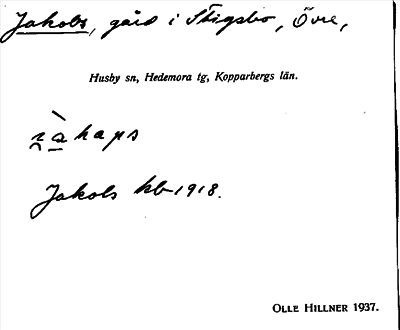 Jakobs, gård i Stigsbo, Övre,
Husby sn, Hedemora tg, Kopparbergs län.
Jakobs kb 1918.
OLLE HILLNER 1937.